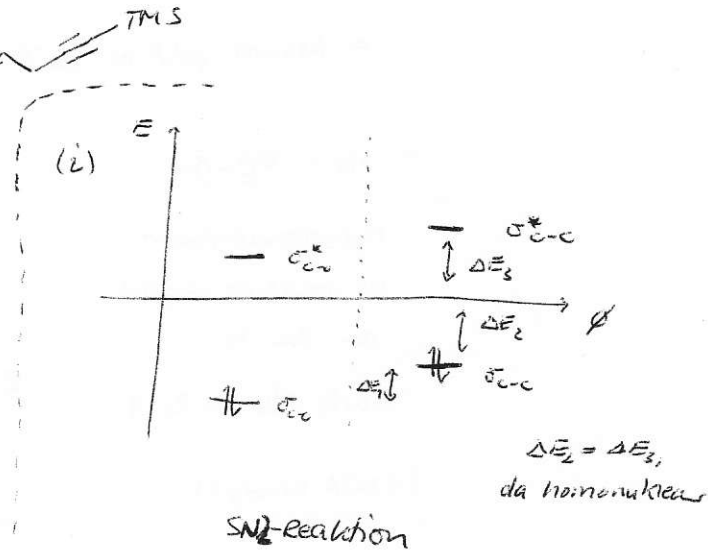 TMS
(i)
E
σ*
σ*c-c
ΔE₃
ϕ
ΔE₂
ΔE₁
σc-c
σ
ΔE₂ = ΔE₃,
da homonuklear
SN2-Reaktion